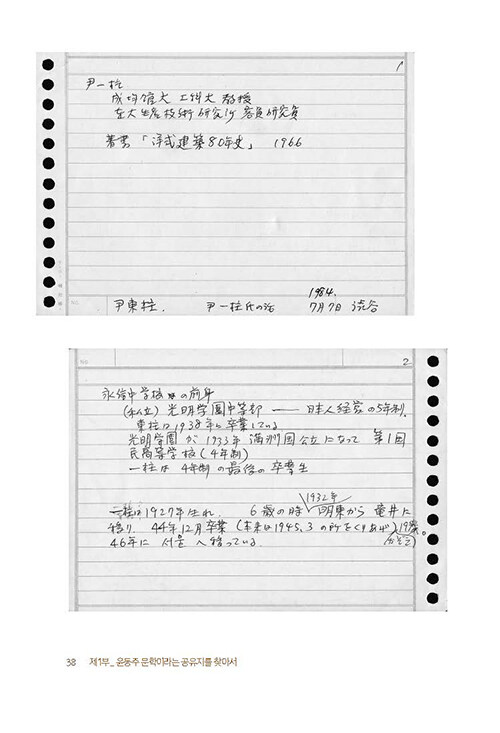 1
尹一柱
成均館大 工科大 教授
東大生産技術研究所 客員研究員
著書 「洋式建築80年史」 1966
尹東柱. 尹一柱氏の話 1984. 7月7日 渋谷
2
永信中学校 の前身
(私立) 光明学園中等部 —— 日本人経営の5年制.
東柱は1938年に卒業している
光明学園 が 1933年 満洲国公立になって 第1回
民高等学校 (4年制)
一柱は 4年制の最後の卒業生
一柱は1927年生れ. 6歳の時 1932年 明東から 竜井に
移り. 44年12月卒業 (本来は1945.3 の所をくりあげ) 19歳。
(かぞえ)
46年に 서울 へ移っている.
38 제1부_ 윤동주 문학이라는 공유지를 찾아서